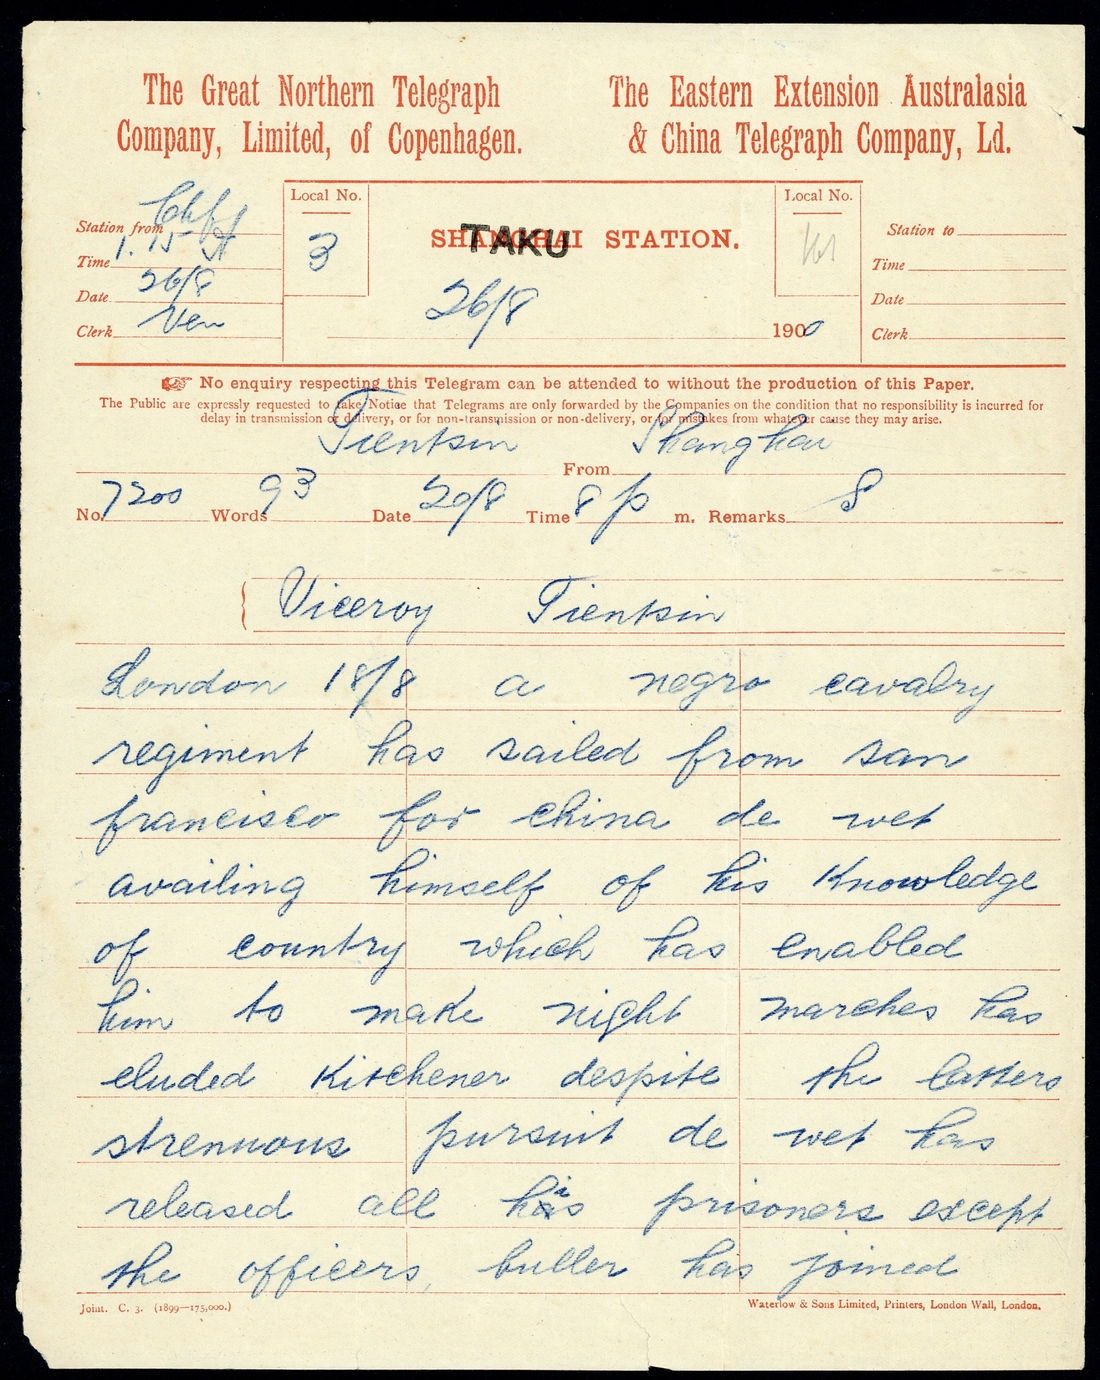 The Great Northern Telegraph
Company, Limited, of Copenhagen.
The Eastern Extension Australasia
& China Telegraph Company, Ld.
Station from
Time 1.15
Date 26/8
Clerk Ven
Local No.
3
SHANGHAI STATION.
TAKU
26/8
1900
Local No.
Station to
Time
Date
Clerk
No enquiry respecting this Telegram can be attended to without the production of this Paper.
The Public are expressly requested to take Notice that Telegrams are only forwarded by the Companies on the condition that no responsibility is incurred for
delay in transmission or delivery, or for non-transmission or non-delivery, or for mistakes from whatever cause they may arise.
Tientsin From Shanghai
No. 7200 Words 93 Date 20/8 Time 8 p m. Remarks 8
Viceroy Tientsin
London 18/8 a negro cavalry
regiment has sailed from san
francisco for china de wet
availing himself of his knowledge
of country which has enabled
him to make night marches has
eluded Kitchener despite the latters
strennous pursuit de wet has
released all his prisoners except
the officers, buller has joined
Joint. C. 3. (1899—175,000.)
Waterlow & Sons Limited, Printers, London Wall, London.